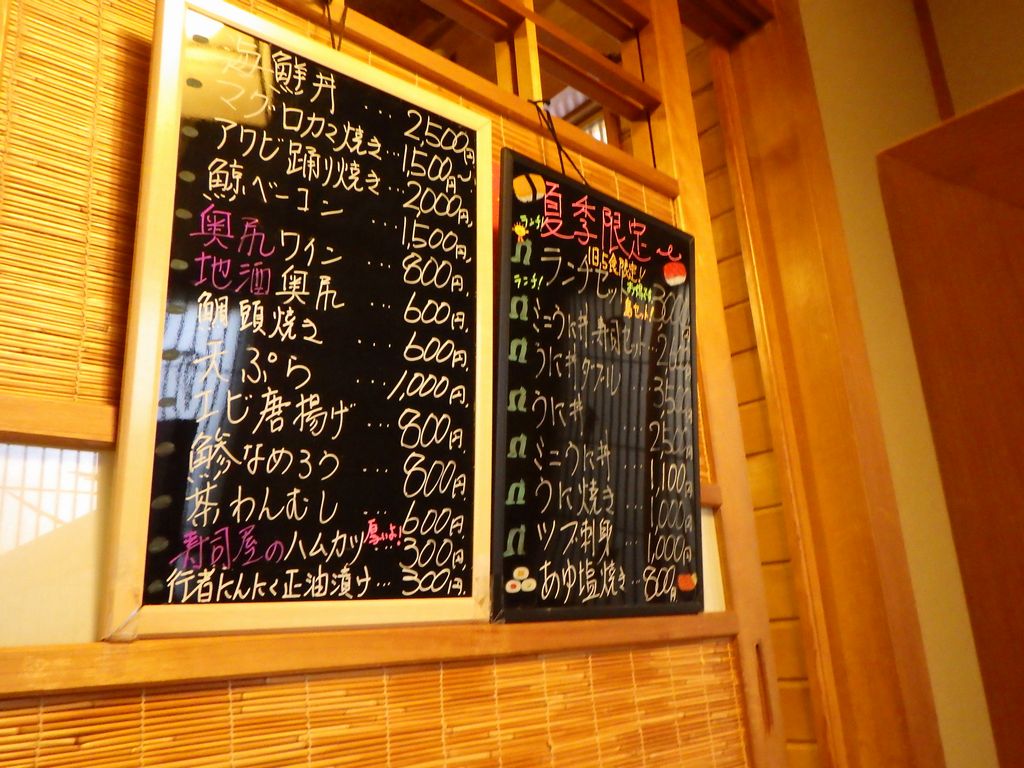 海鮮丼 … 2,500円〜
マグロカマ焼き … 1,500円〜
アワビ踊り焼き … 2,000円
鯨ベーコン … 1,500円
奥尻ワイン … 800円
地酒奥尻 … 600円
鯛頭焼き … 600円
天ぷら … 1,000円
エビ唐揚げ 800円
鯵なめろう … 800円
茶わんむし … 600円
寿司屋のハムカツ 厚いよ! 300円
行者にんにく正油漬け … 300円
夏季限定
1日5食限定!!
ランチ! ランチセット
ランチ! ミニうに丼寿司セット
うに丼ダブル … 3,500
うに丼 … 2,500
ミニうに丼 … 1,100円
うに焼き … 1,000円
ツブ刺身 … 1,000円
あゆ塩焼き … 800円